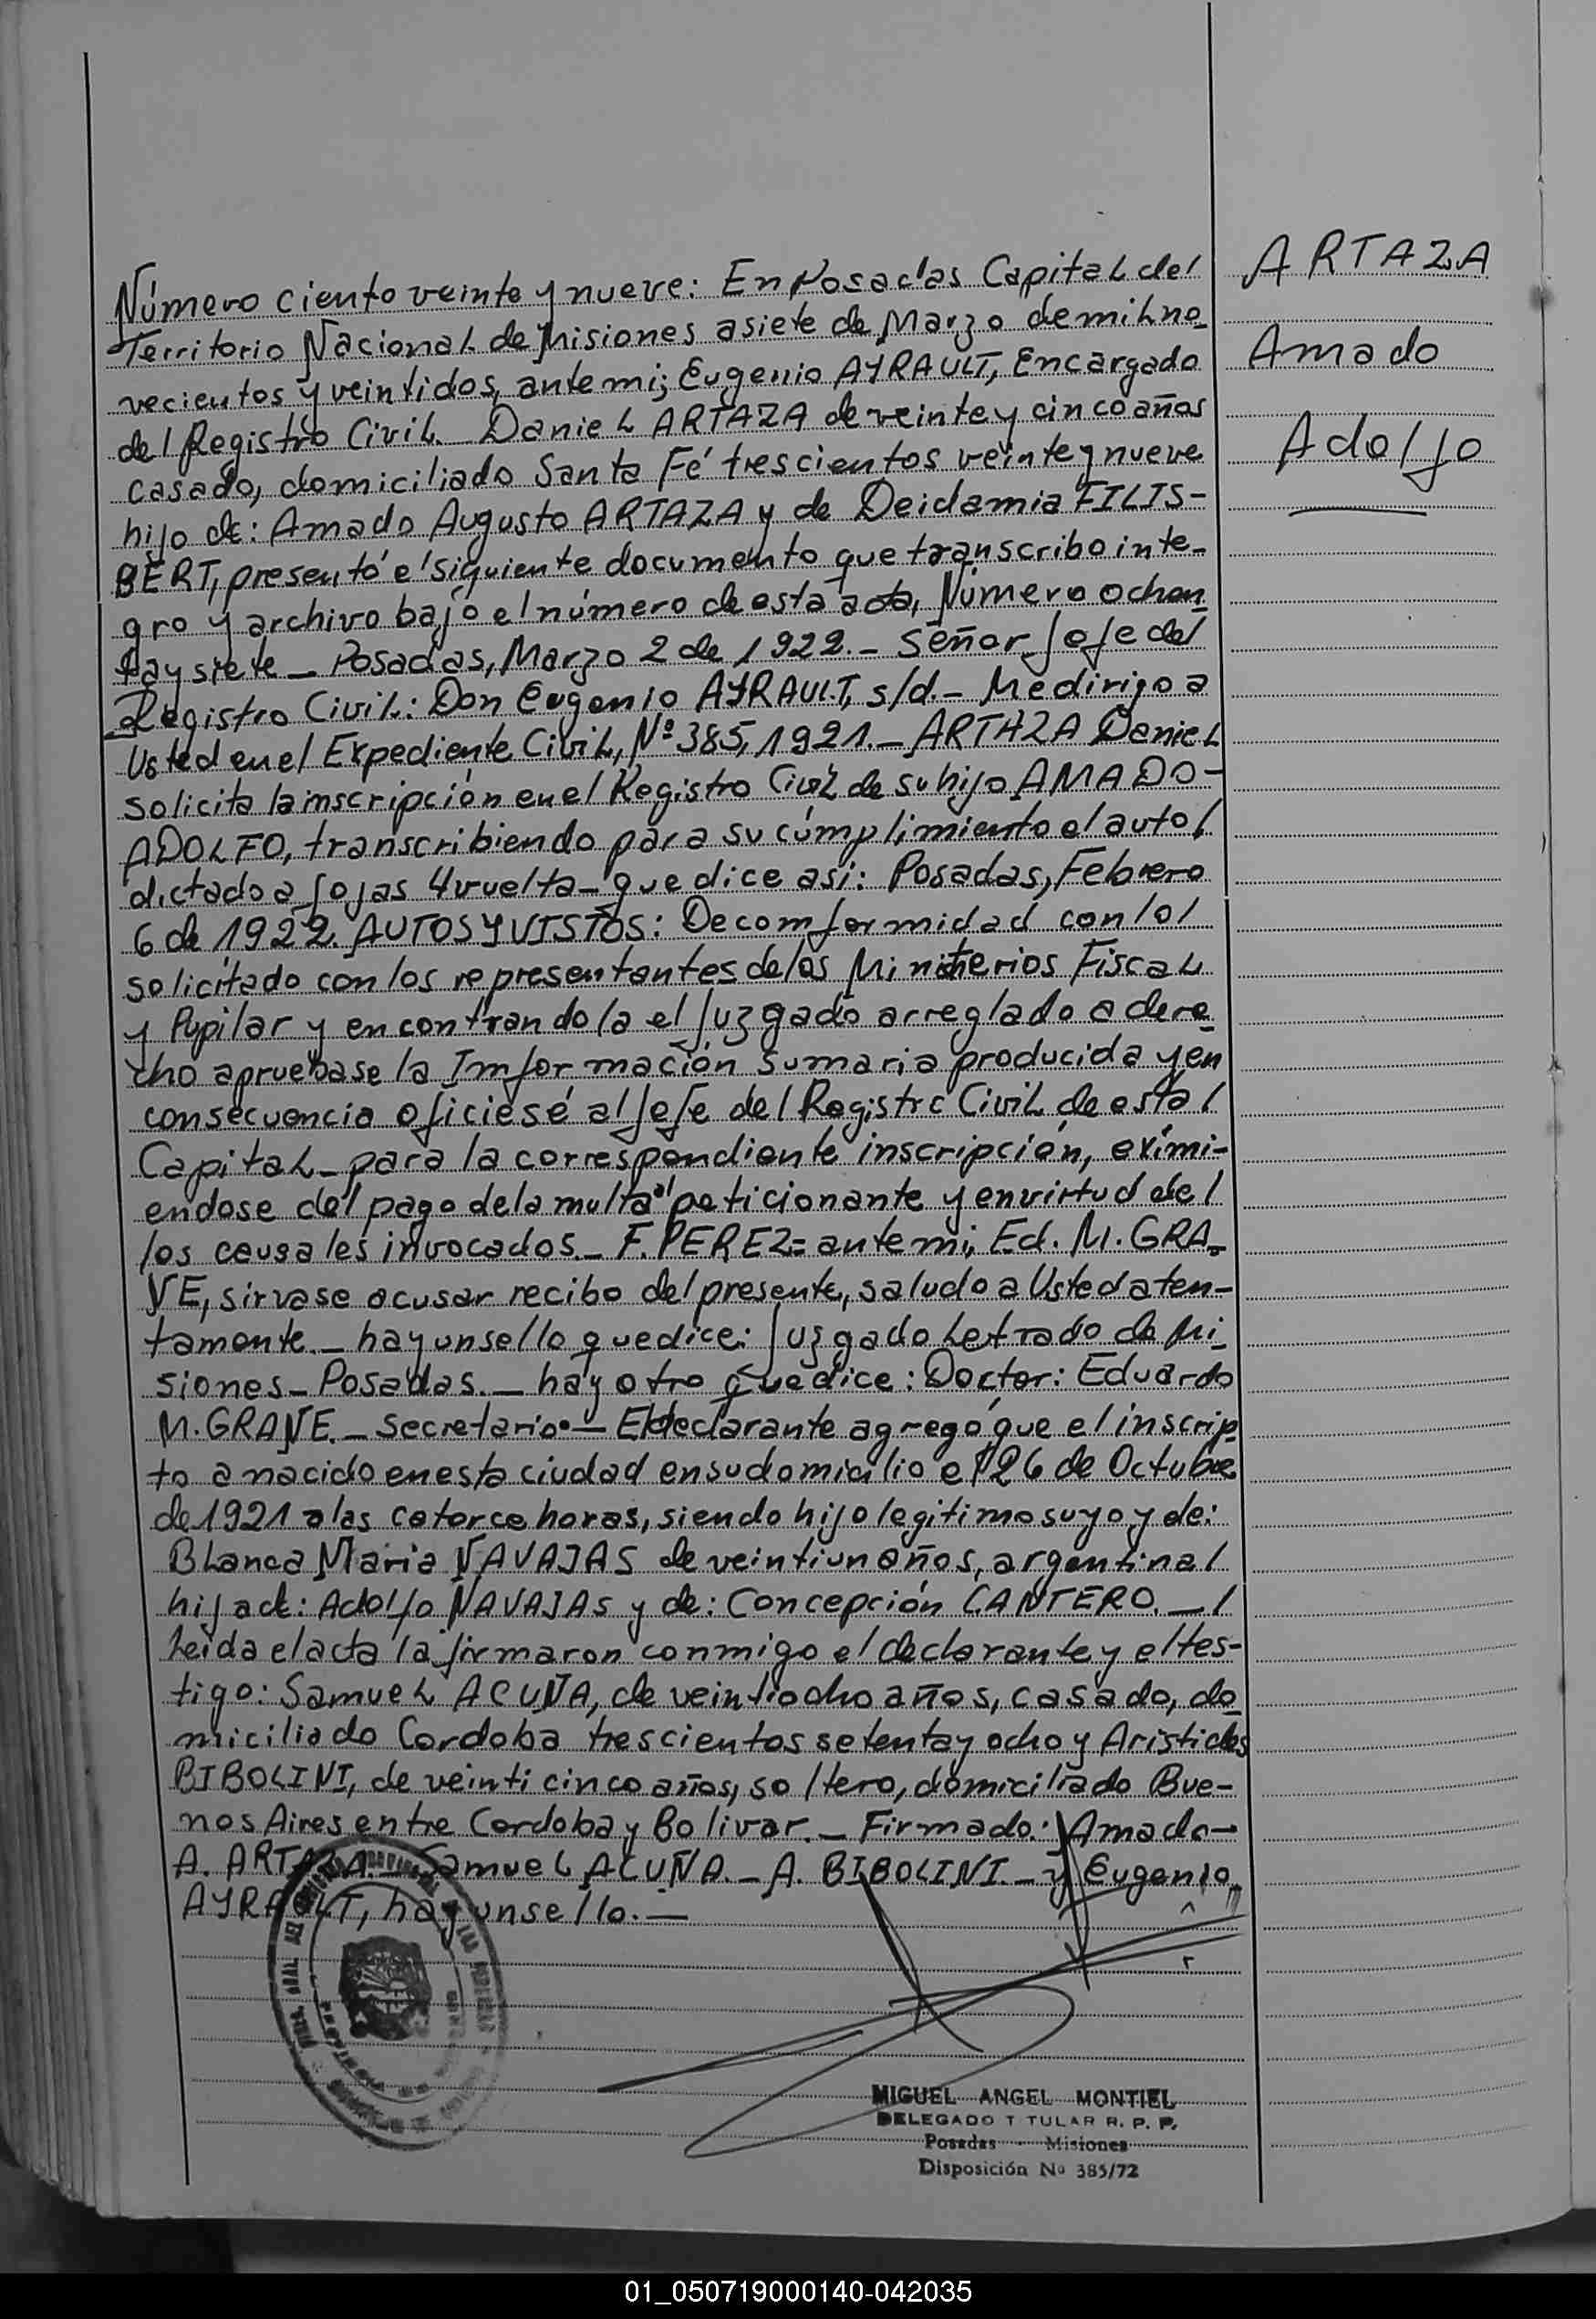 Número ciento veinte y nueve: En Posadas Capital del
Territorio Nacional de Misiones a siete de Marzo de mil no_
vecientos y veintidos, ante mi; Eugenio AYRAULT, Encargado
del Registro Civil. Daniel ARTAZA de veinte y cinco años
casado, domiciliado Santa Fé trescientos veinte y nueve
hijo de: Amado Augusto ARTAZA y de Deidamia FILIS-
BERT, presentó el siguiente documento que transcribo inte_
gro y archivo bajo el número de esta acta, Número ochen_
ta y siete_ Posadas, Marzo 2 de 1922._ Señor Jefe del
Registro Civil: Don Eugenio AYRAULT, s/d._ Me dirijo a
Usted en el Expediente Civil, Nº 385, 1921._ ARTAZA Daniel
solicita la inscripción en el Registro Civil de su hijo AMADO-
ADOLFO, transcribiendo para su cúmplimiento el auto/
dictado a fojas 4 vuelta_ que dice asi: Posadas, Febrero
6 de 1922. AUTOS Y VISTOS: De comformidad con lo/
solicitado con los representantes de los Ministerios Fiscal
y Pupilar y encontrandola el Juzgado arreglado a dere_
cho apruebase la Imformación sumaria producida y en
consecuencia oficiesé al Jefe del Registro Civil de esta/
Capital_ para la correspondiente inscripción, eximi-
endose del pago de la multa al peticionante y en virtud de/
los causales invocados._ F. PEREZ= ante mi; Ed. M. GRA_
VE, sirvase acusar recibo del presente, saludo a Usted aten-
tamente._ hay un sello que dice: Juzgado Letrado de Mi_
siones_ Posadas._ hay otro que dice: Doctor: Eduardo
M. GRAVE._ Secretario._ El declarante agregó que el inscrip_
to a nacido en esta ciudad en su domicilio el 26 de Octubre
de 1921 a las catorce horas, siendo hijo legitimo suyo y de:
Blanca Maria NAVAJAS de veintiun años, argentina/
hija de: Adolfo NAVAJAS y de: Concepción CANTERO._/
Leida el acta la firmaron conmigo el declarante y el tes-
tigo: Samuel ACUÑA, de veintiocho años, casado, do_
miciliado Cordoba trescientos setenta y ocho y Aristides
BIBOLINI, de veinticinco años, soltero, domiciliado Bue-
nos Aires entre Cordoba y Bolivar._ Firmado: Amado-
A. ARTAZA._ Samuel ACUÑA._ A. BIBOLINI._ y Eugenio_
AYRAULT, hay un sello._
ARTAZA
Amado
Adolfo
MIGUEL ANGEL MONTIEL
DELEGADO T TULAR R. P. P.
Posadas - Misiones
Disposición Nº 385/72
01_050719000140-042035